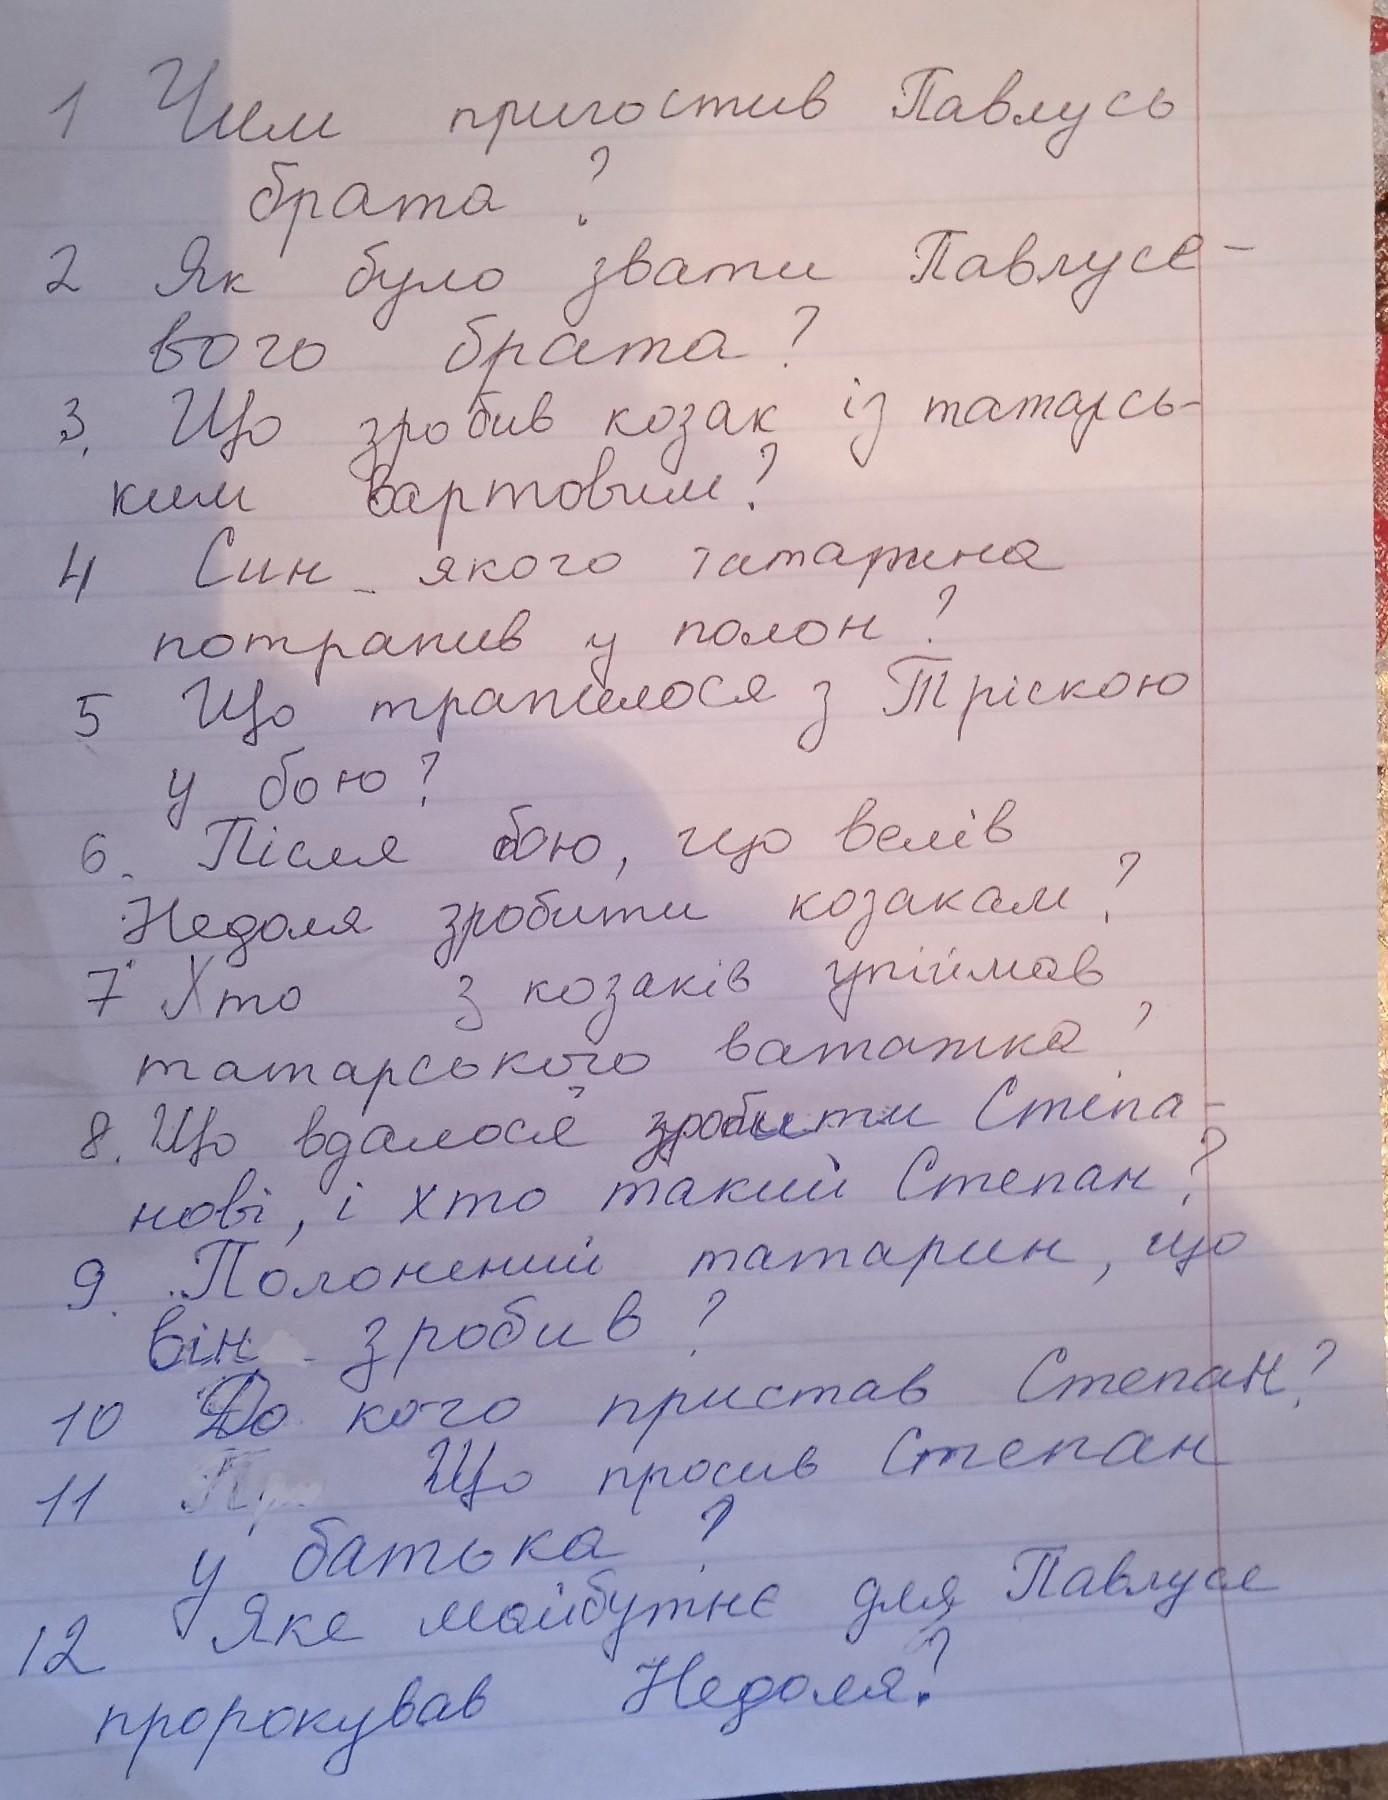 1 Чим пригостив Павлусь
брата?
2 Як було звати Павлусе-
вого брата?
3. Що зробив козак із татарсь-
ким вартовим?
4 Син якого татарина
потрапив у полон?
5 Що трапилося з Тріскою
у бою?
6. Після бою, що велів
Недоля зробити козакам?
7 Хто з козаків упіймав
татарського ватажка?
8. Що вдалося зробити Степа-
нові, і хто такий Степан?
9. Полонений татарин, що
він зробив?
10 До кого пристав Степан?
11 Що просив Степан
у батька?
12 Яке майбутнє для Павлуся
пророкував Недоля?